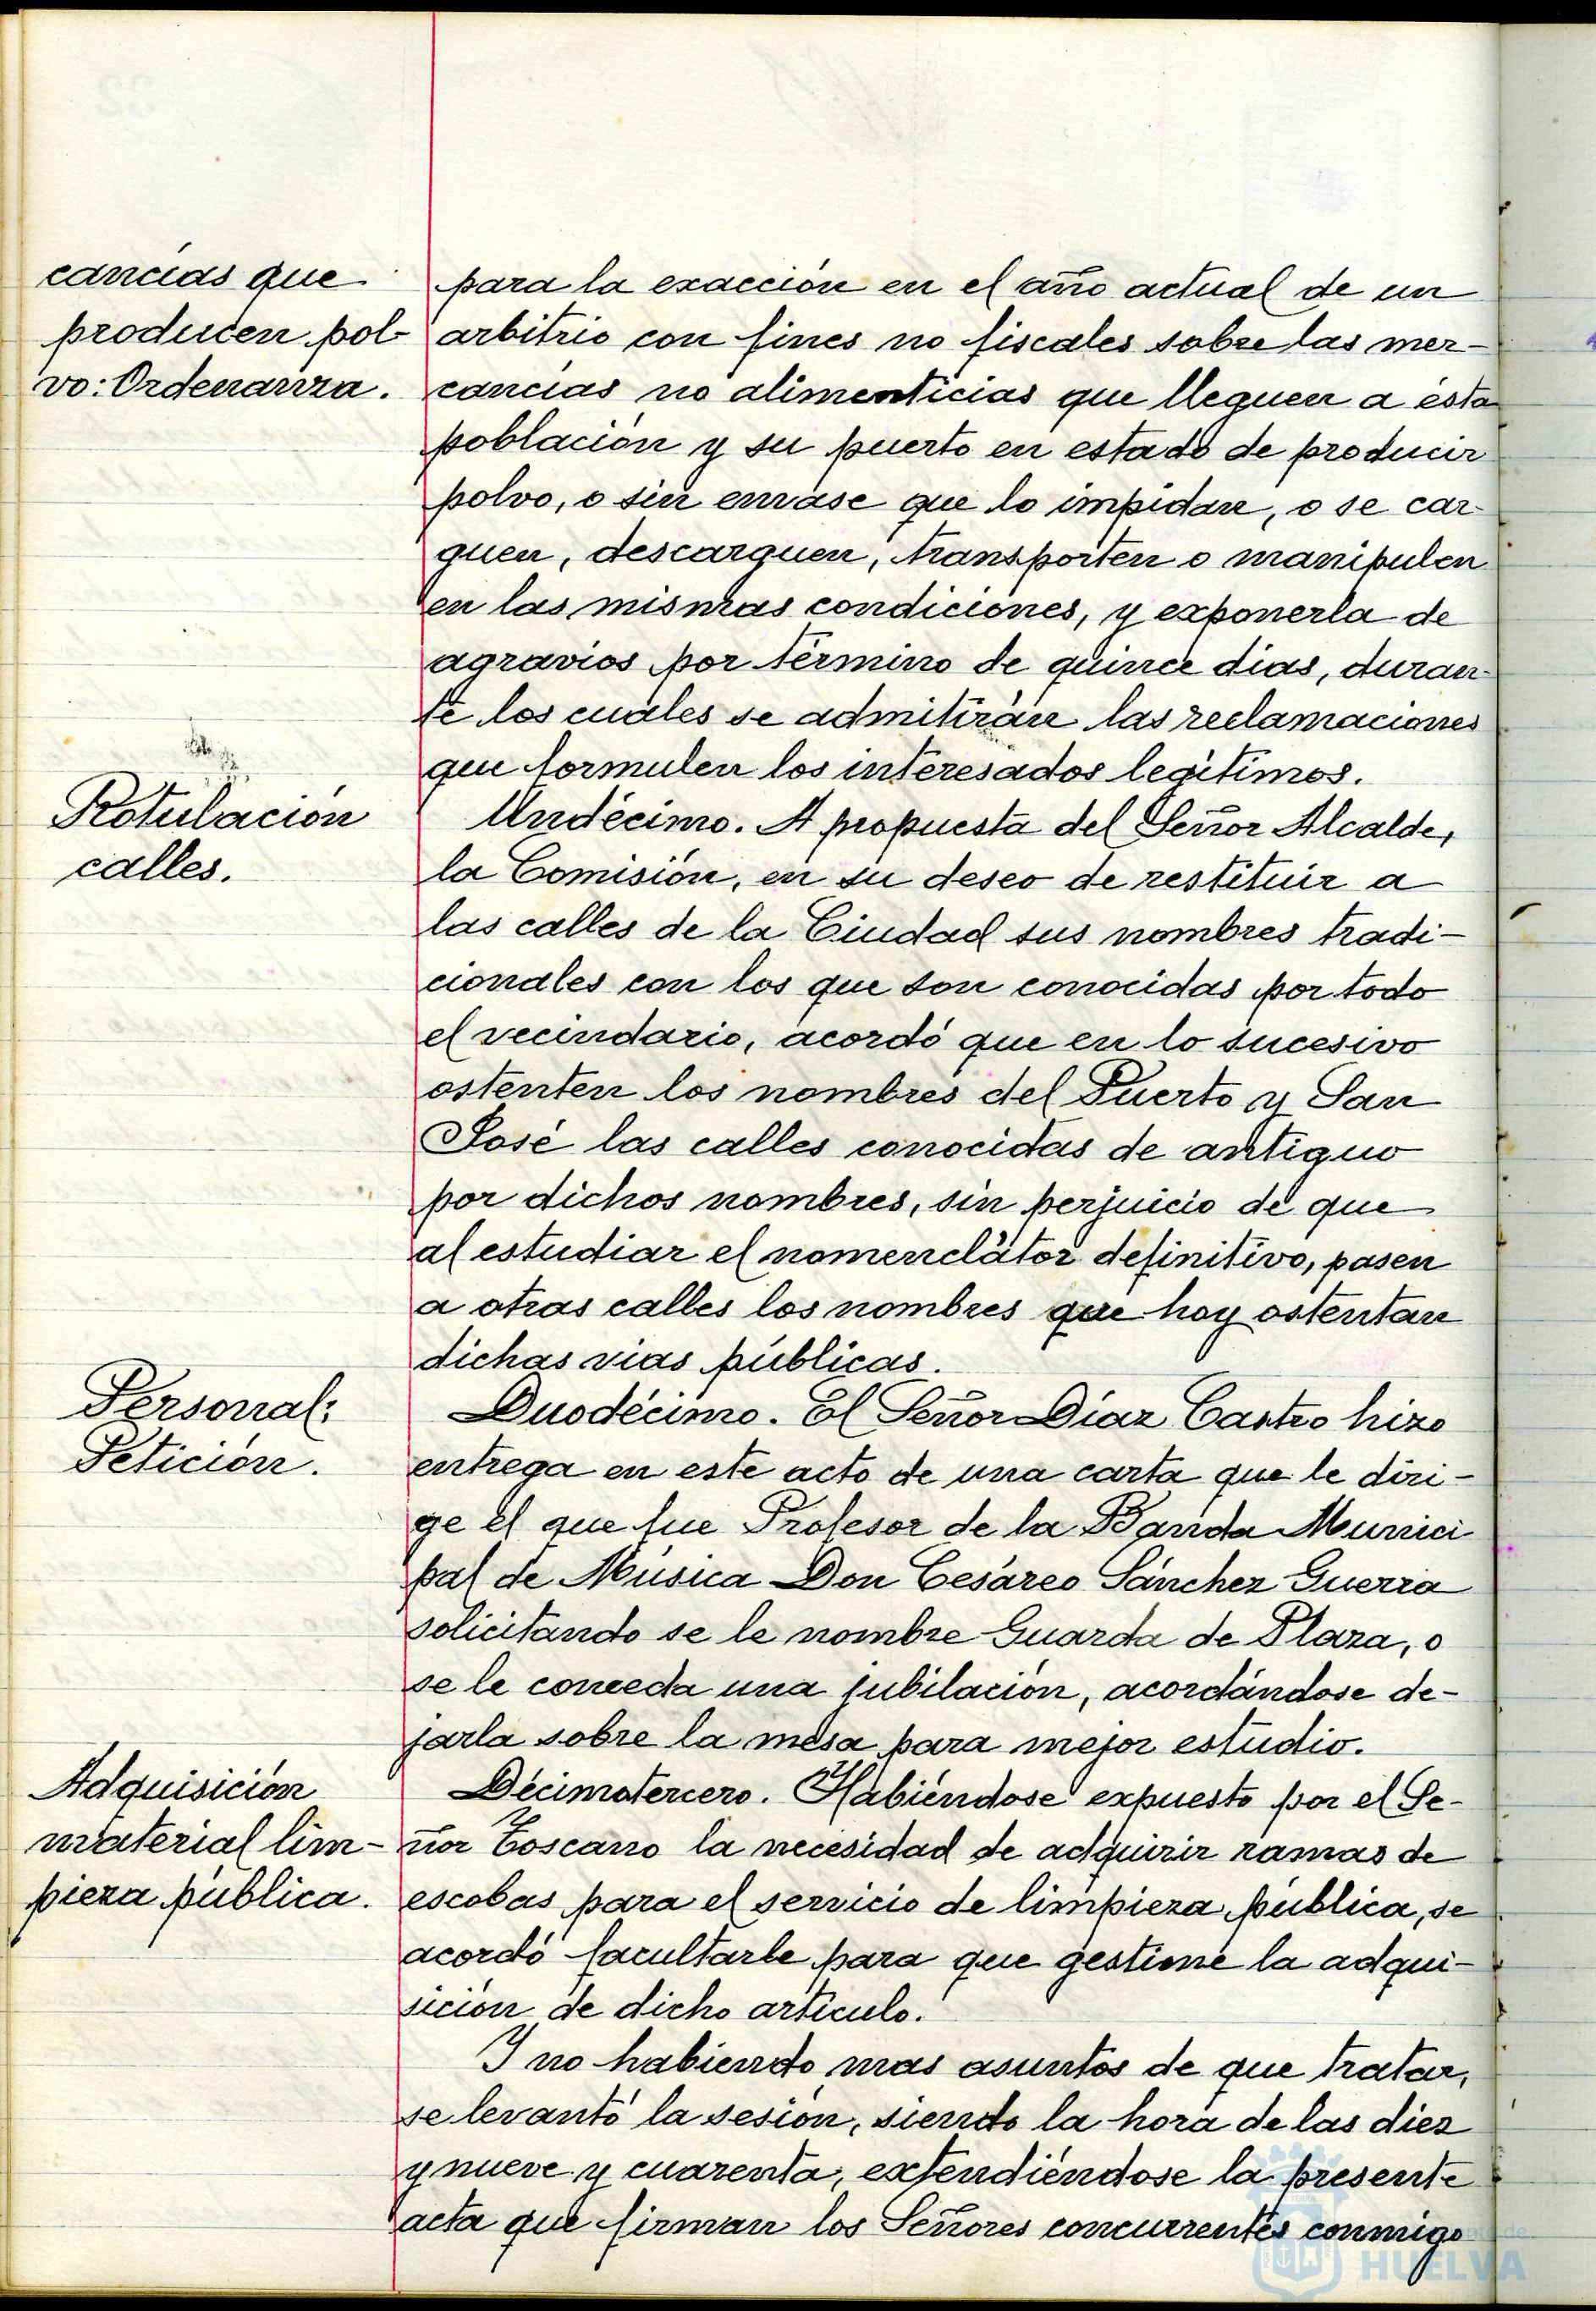 cancias que
producen pol-
vo: Ordenanza.
para la exacción en el año actual de un
arbitrio con fines no fiscales sobre las mer-
cancías no alimenticias que lleguen a ésta
población y su puerto en estado de producir
polvo, o sin envase que lo impidan, o se car-
guen, descarguen, transporten o manipulen
en las mismas condiciones, y exponerla de
agravios por término de quince dias, duran-
te los cuales se admitirán las reclamaciones
que formulen los interesados legítimos.
Rotulación
calles.
Undécimo. A propuesta del Señor Alcalde,
la Comisión, en su deseo de restituir a
las calles de la Ciudad sus nombres tradi-
cionales con los que son conocidas por todo
el vecindario, acordó que en lo sucesivo
ostenten los nombres del Puerto y San
José las calles conocidas de antiguo
por dichos nombres, sin perjuicio de que
al estudiar el nomenclátor definitivo, pasen
a otras calles los nombres que hoy ostentan
dichas vias públicas.
Personal:
Petición.
Duodécimo. El Señor Díaz Castro hizo
entrega en este acto de una carta que le diri-
ge el que fue Profesor de la Banda Munici
pal de Música Don Cesáreo Sánchez Guerra
solicitando se le nombre Guarda de Plaza, o
se le conceda una jubilación, acordándose de-
jarla sobre la mesa para mejor estudio.
Adquisición
material lim-
pieza pública.
Décimotercero. Habiéndose expuesto por el Se-
ñor Toscano la necesidad de adquirir ramas de
escobas para el servicio de limpieza pública, se
acordó facultarle para que gestione la adqui-
sición de dicho artículo.
Y no habiendo mas asuntos de que tratar,
se levantó la sesión, siendo la hora de las diez
y nueve y cuarenta, extendiéndose la presente
acta que firman los Señores concurrentes conmigo
HUELVA